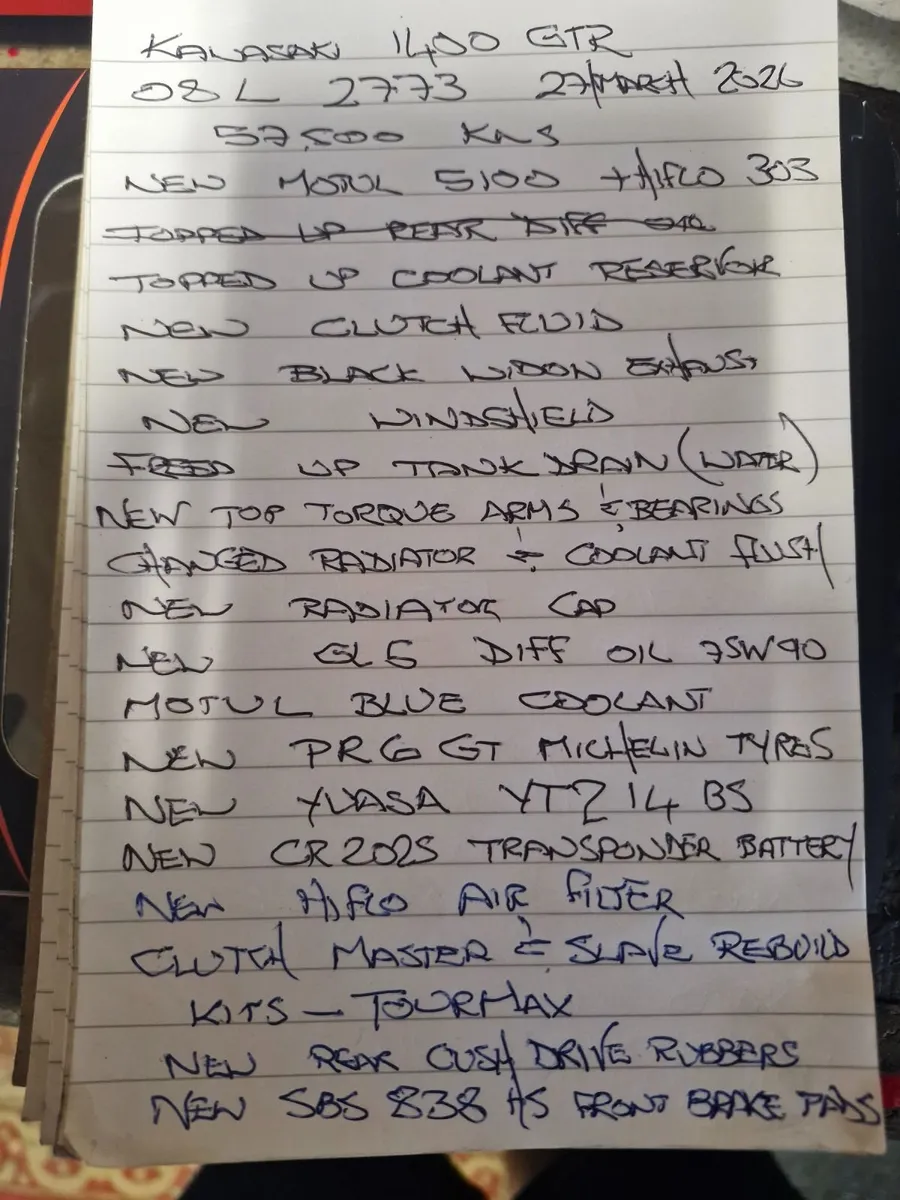 KAWASAKI 1400 GTR
08 L 2773 27/MARCH 2026
57,500 KMS
NEW MOTUL 5100 + HIFLO 303
TOPPED UP REAR DIFF OIL
TOPPED UP COOLANT RESERVOIR
NEW CLUTCH FLUID
NEW BLACK WIDOW EXHAUST
NEW WINDSHIELD
FREED UP TANK DRAIN (WATER)
NEW TOP TORQUE ARMS & BEARINGS
CHANGED RADIATOR & COOLANT FLUSH
NEW RADIATOR CAP
NEW GL5 DIFF OIL 75W90
MOTUL BLUE COOLANT
NEW PR6 GT MICHELIN TYRES
NEW YUASA YTZ 14 BS
NEW CR2025 TRANSPONDER BATTERY
NEW HIFLO AIR FILTER
CLUTCH MASTER & SLAVE REBUILD
KITS - TOURMAX
NEW REAR CUSH DRIVE RUBBERS
NEW SBS 838 HS FRONT BRAKE PADS